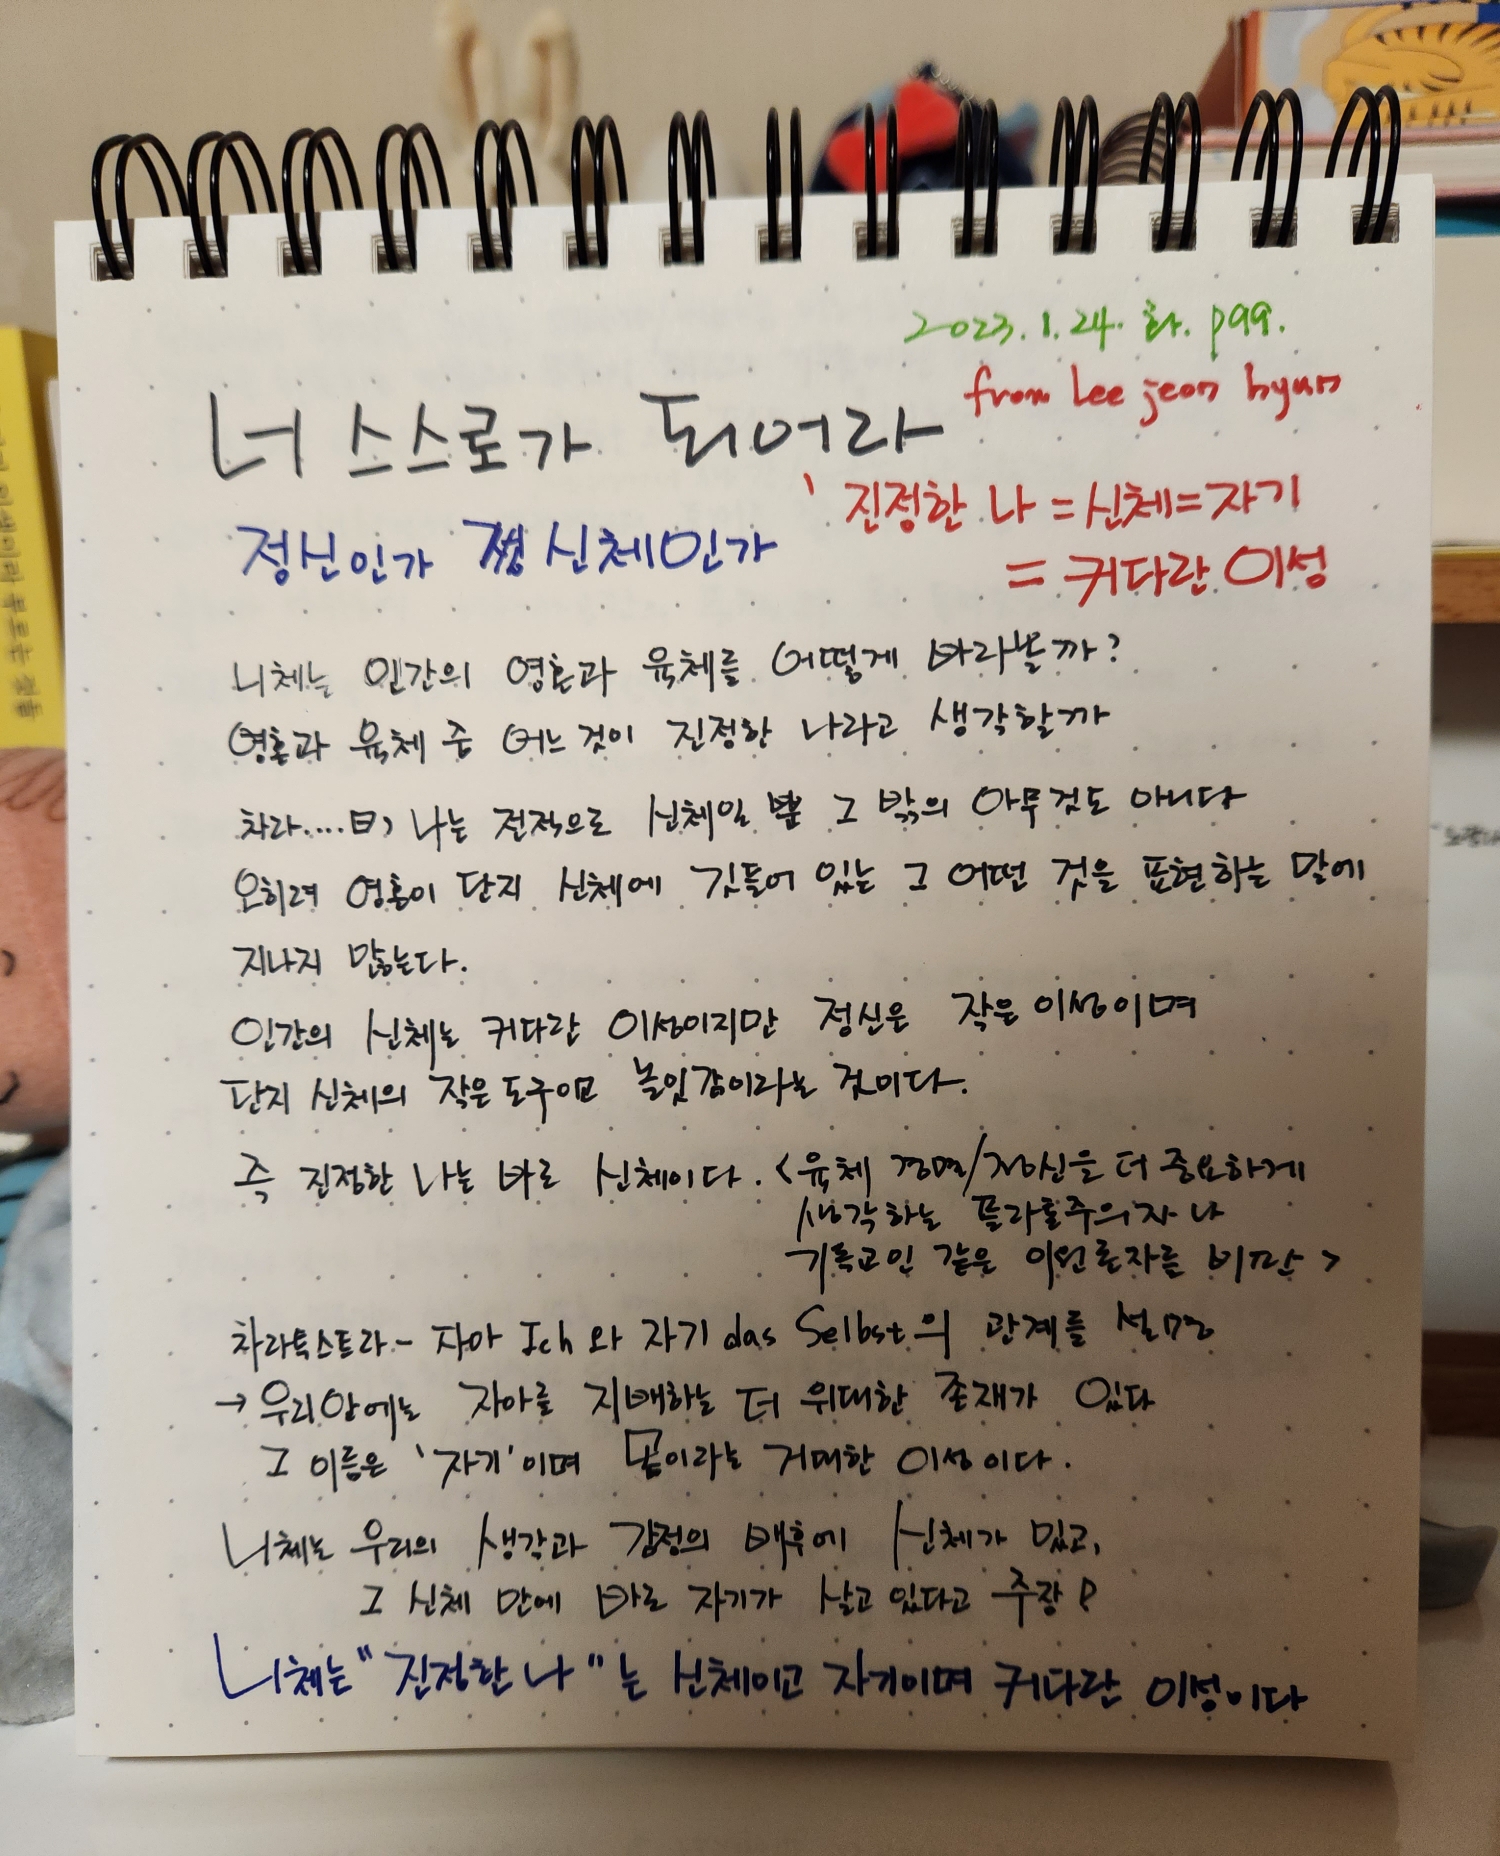 2023.1.24. 화. p99.
from Lee jeon hyun
너 스스로가 되어라
' 진정한 나 = 신체 = 자기
= 커다란 이성
정신인가 신체인가
니체는 인간의 영혼과 육체를 어떻게 바라볼까?
영혼과 육체 중 어느것이 진정한 나라고 생각할까
차라....曰, 나는 전적으로 신체일 뿐 그 밖의 아무것도 아니다
오히려 영혼이 단지 신체에 깃들어 있는 그 어떤 것을 표현하는 말에
지나지 않는다.
인간의 신체는 커다란 이성이지만 정신은 작은 이성이며
단지 신체의 작은 도구이고 놀잇감이라는 것이다.
즉 진정한 나는 바로 신체이다. <육체 경멸/정신을 더 중요하게
생각하는 플라톤주의자나
기독교인 같은 이원론자를 비판>
차라투스트라 - 자아 Ich 와 자기 das Selbst의 관계를 설명
→ 우리안에는 자아를 지배하는 더 위대한 존재가 있다
그 이름은 '자기'이며 몸이라는 거대한 이성이다.
니체는 우리의 생각과 감정의 배후에 신체가 있고,
그 신체 안에 바로 자기가 살고 있다고 주장
니체는 "진정한 나"는 신체이고 자기이며 커다란 이성이다